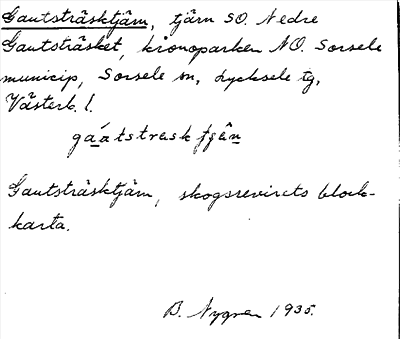 Gautsträsktjärn, tjärn SO. Nedre
Gautsträsket, kronoparken NO. Sorsele
municip, Sorsele sn, Lycksele tg,
Västerb. l.
gáatstrask
Gautsträsktjärn, skogsrevirets block-
karta.
B. Nygren 1935.